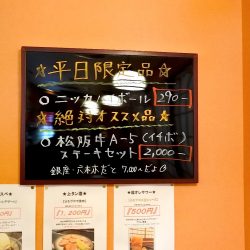 ☆平日限定品☆
○ニッカハイボール 290-
☆絶対オススメ品☆
○松阪牛A-5(イチボ)
ステーキセット 2,000-
銀座・六本木だと7,000-だよ😊
1,200円
500円